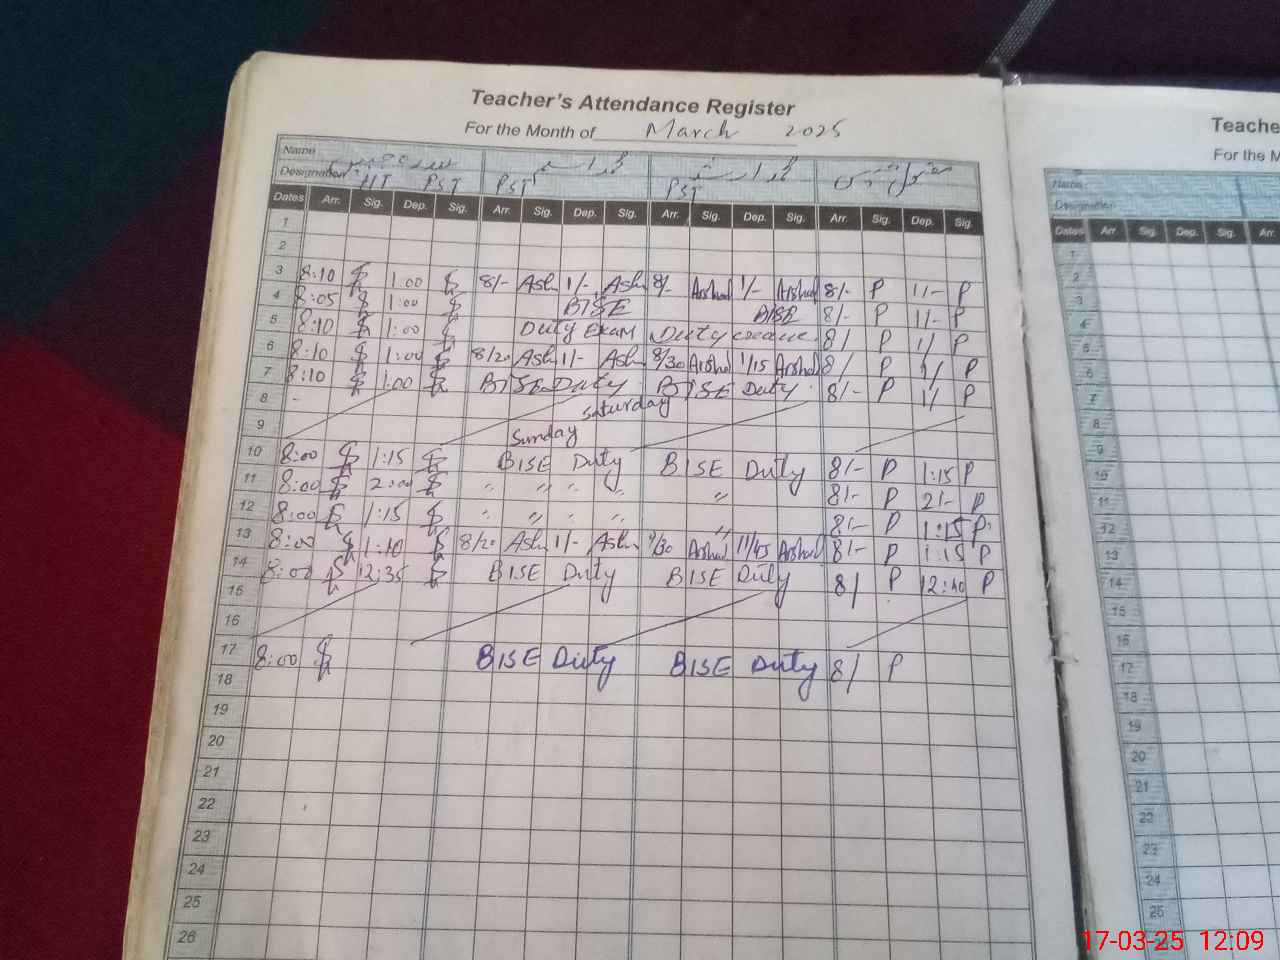 Teacher's Attendance Register
For the Month of March 2025
Name
Designation HT PST PST PST
Dates Arr. Sig. Dep. Sig. Arr. Sig. Dep. Sig. Arr. Sig. Dep. Sig. Arr. Sig. Dep. Sig.
1
2
3 8:10 1:00 8/- Ash 1/- Ash 8/- Arshad 1/- Arshad 8/- P 1/- P
4 8:05 1:00 BISE BISE 8/- P 1/- P
5 8:10 1:00 Duty Exam Duty 8/ P 1/ P
6 8:10 1:00 8/20 Ash 1/- Ash 8/30 Arshad 1/15 Arshad 8/ P 1/ P
7 8:10 1:00 BISE Duty BISE Duty 8/- P 1/ P
8 - Saturday
9 Sunday
10 8:00 1:15 BISE Duty BISE Duty 8/- P 1:15 P
11 8:00 2:00 " " " " " 8/- P 2/- P
12 8:00 1:15 " " " " " 8/- P 1:15 P
13 8:00 1:10 8/20 Ash 1/- Ash /30 Arshad 11/45 Arshad 8/- P 1:15 P
14 8:00 12:35 BISE Duty BISE Duty 8/ P 12:40 P
15
16
17 8:00 BISE Duty BISE Duty 8/ P
18
19
20
21
22
23
24
25
26
Teache
For the M
Name
Designation
Dates Arr. Sig. Dep. Sig. Arr.
1
2
3
4
5
6
7
8
9
10
11
12
13
14
15
16
17
18
19
20
21
22
23
24
25
17-03-25 12:09